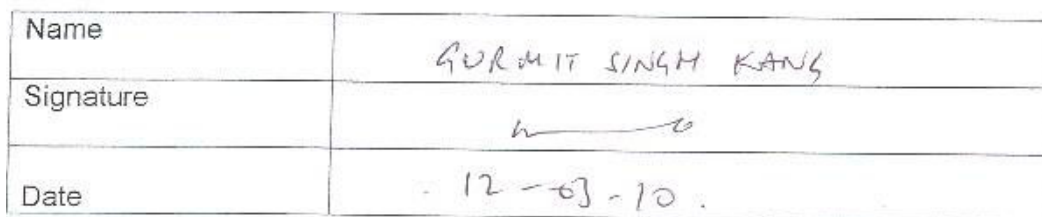 Name GURMIT SINGH KANG
Signature
Date 12-03-10.